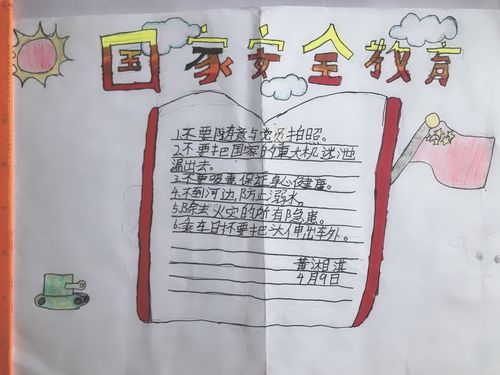 国家安全教育
1.不要随意与党员拍照。
2.不要把国家的重大机迷泄
漏出去。
3.不要吸毒保证身心健康。
4.不到河边,防止溺水。
5.除去火灾的所有隐患。
6.乘车时不要把头伸出车外。
黄湘淇
4月9日